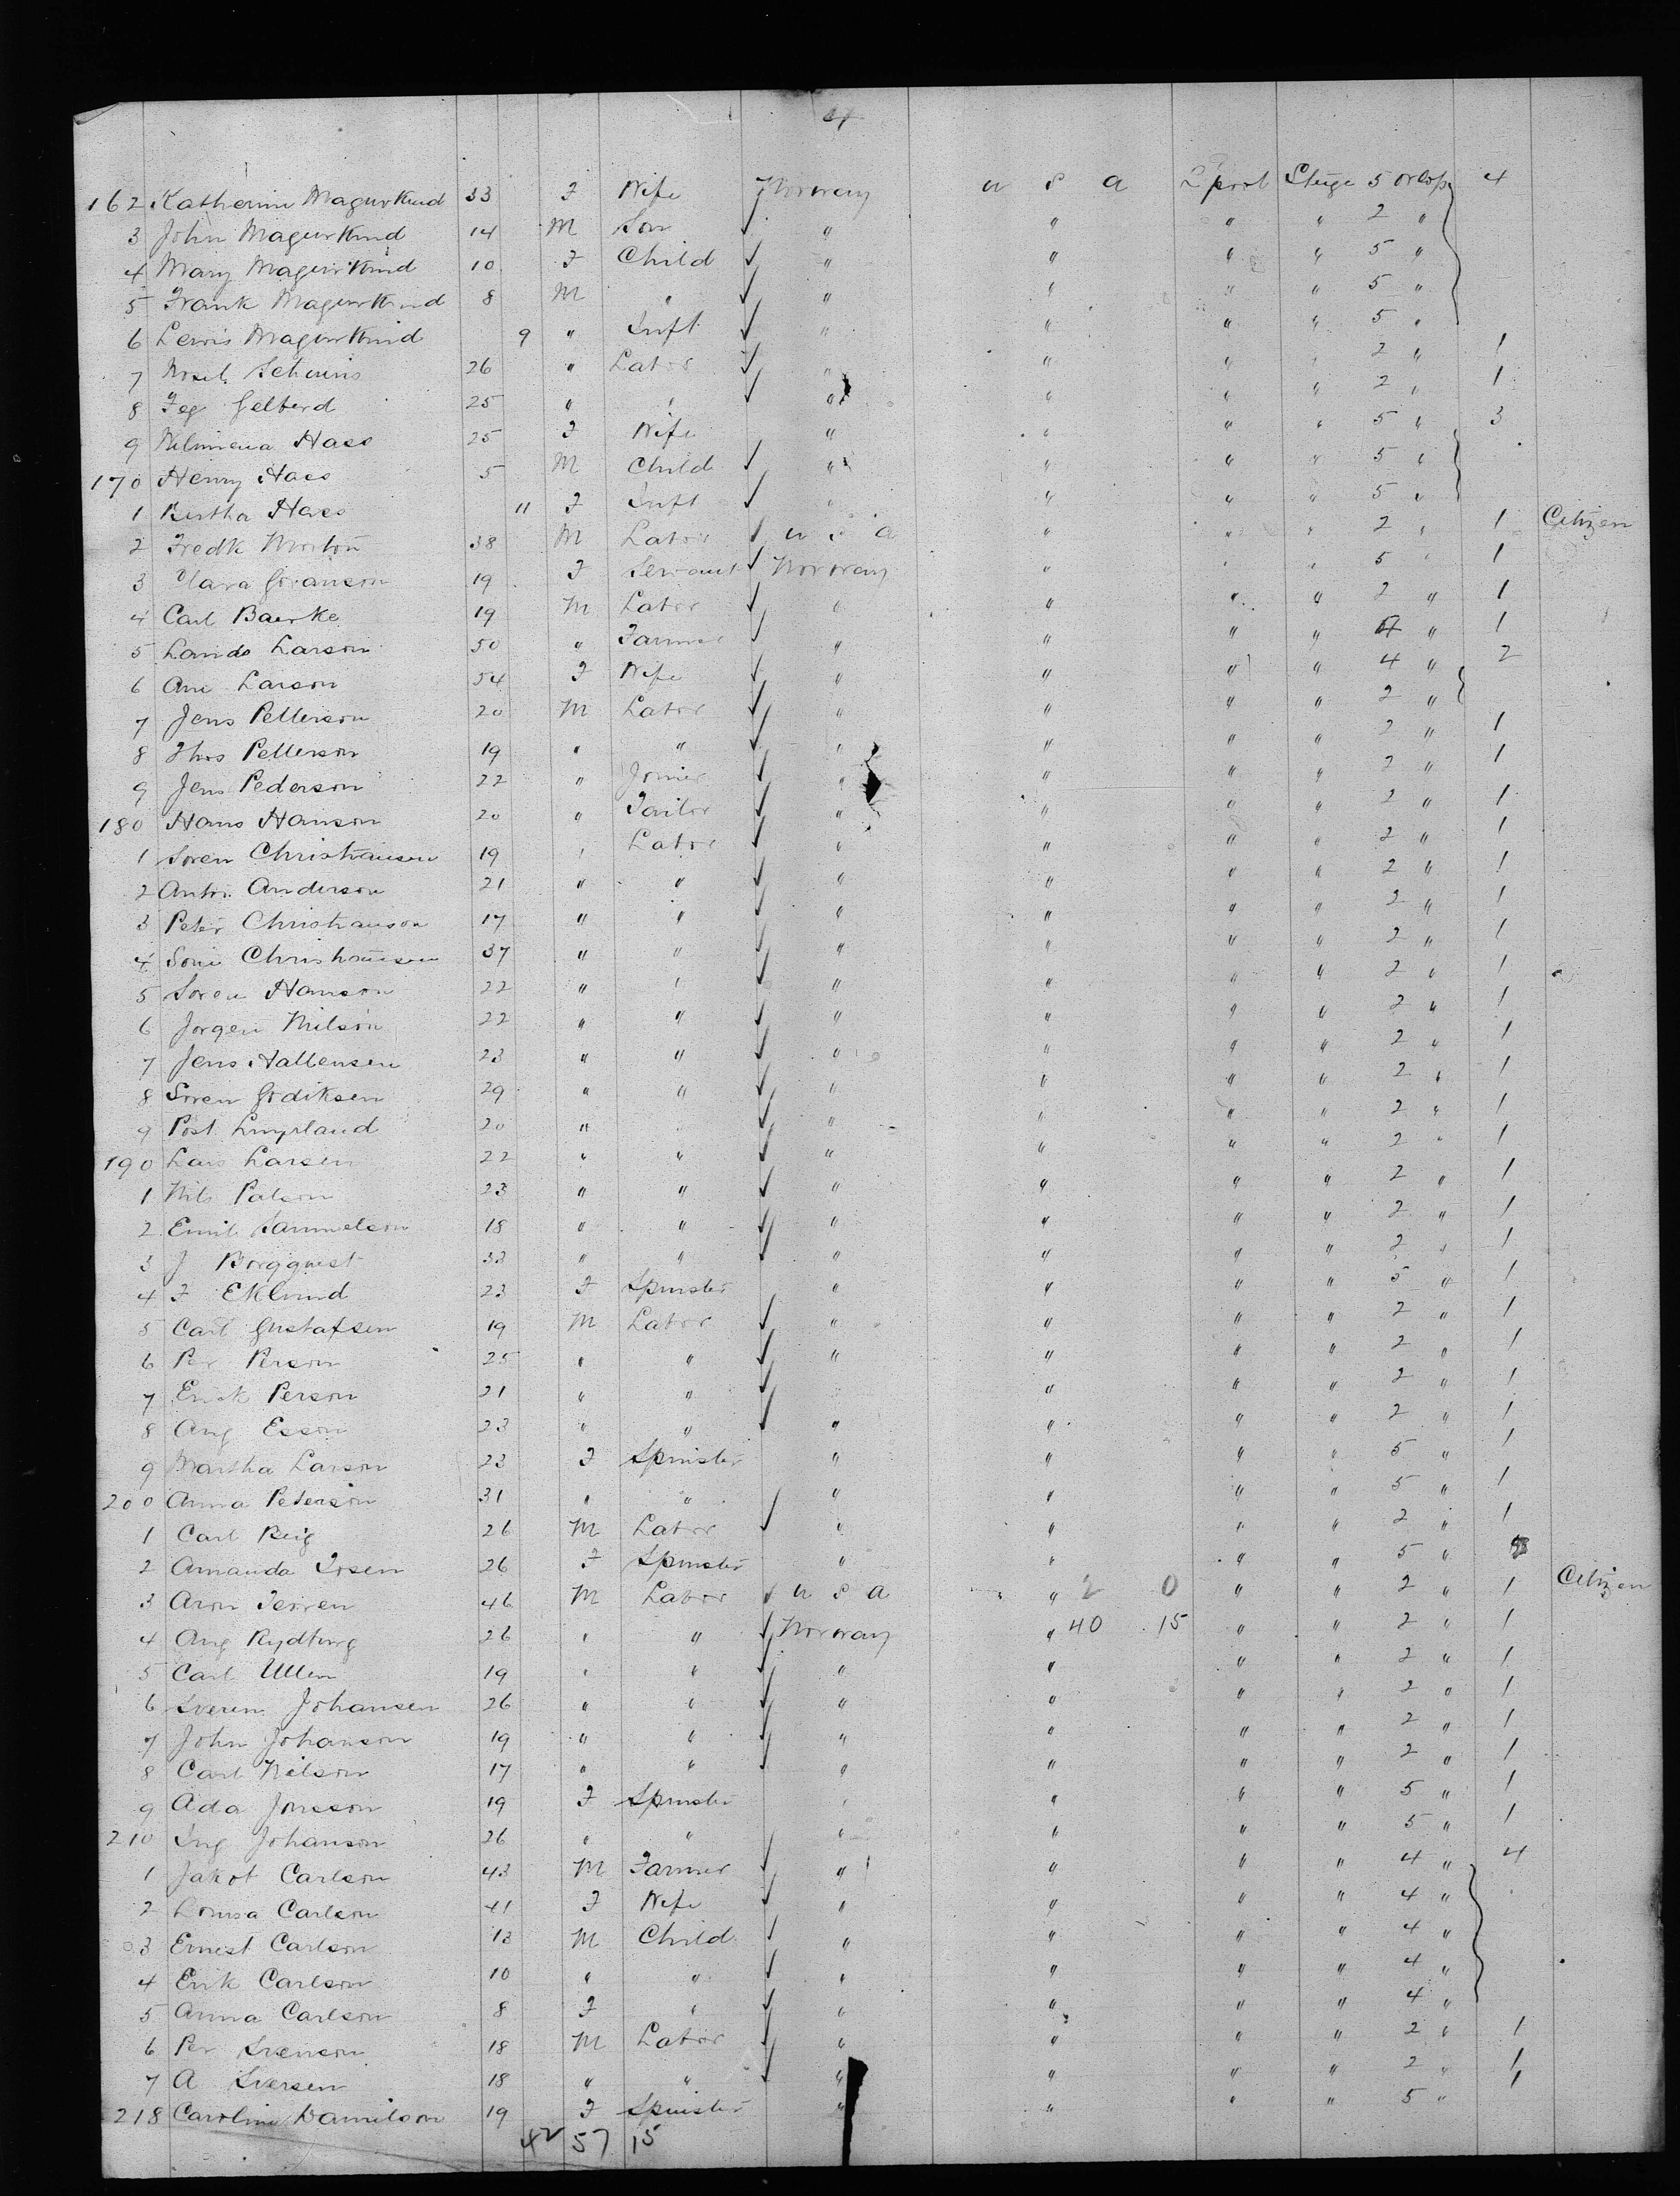 4
162 Katherine Magurkind 33 F Wife Norway U S A L'pool Stuge 5 Orlop 4
3 John Magurkind 14 M Son ✓ " " " " 2 "
4 Mary Magurkind 10 F Child ✓ " " " " 5 "
5 Frank Magurkind 8 M " ✓ " " " " 5 "
6 Lewis Magurkind 9 " Inft ✓ " " " " 5 "
7 26 " Labor ✓ " " " " 2 " 1
8 25 " " ✓ " " " " 2 " 1
9 Haes 25 F Wife " " " " 5 " 3
170 Henry Haes 5 M Child ✓ " " " " 5 "
1 Bertha Haes 11 F Inft ✓ " " " " 5 "
2 Fredk Morton 38 M Labor ✓ U S A " " " 2 " 1 Citizen
3 Clara Goranson 19 F Servant ✓ Norway " " " 5 " 1
4 Carl Baerke 19 M Labor ✓ " " " " 2 " 1
5 Larson 50 " Farmer ✓ " " " " 4 " 1
6 Ane Larson 54 F Wife ✓ " " " " 4 " 2
7 Jens Petterson 20 M Labor ✓ " " " " 2 "
8 Thos Petterson 19 " " ✓ " " " " 2 " 1
9 Jens Pederson 22 " Joiner ✓ " " " " 2 " 1
180 Hans Hanson 20 " Tailor ✓ " " " " 2 " 1
1 Soren Christiansen 19 " Labor ✓ " " " " 2 " 1
2 Anton Anderson 21 " " ✓ " " " " 2 " 1
3 Peter Christianson 17 " " ✓ " " " " 2 " 1
4 Christiansen 37 " " ✓ " " " " 2 " 1
5 Soren Hanson 22 " " ✓ " " " " 2 " 1
6 Jorgen Nilson 22 " " ✓ " " " " 2 " 1
7 Jens 23 " " ✓ " " " " 2 " 1
8 Soren Godiksen 29 " " ✓ " " " " 2 " 1
9 Post 20 " ✓ " " " " 2 " 1
190 Lars Larsen 22 " " ✓ " " " " 2 " 1
1 Nils Palson 23 " " ✓ " " " " 2 " 1
2 Emil Sammelson 18 " " ✓ " " " " 2 " 1
3 J Borgquest 33 " " ✓ " " " " 2 " 1
4 F Eklund 23 F Spinster " " " " 5 " 1
5 Carl Gustafsen 19 M Labor ✓ " " " " 2 " 1
6 Per Person 25 " " ✓ " " " " 2 " 1
7 Erick Person 21 " " ✓ " " " " 2 " 1
8 Aug Esson 23 " " ✓ " " " " 2 " 1
9 Martha Larson 23 F Spinster " " " " 5 " 1
200 Anna Peterson 31 " " " " " " 5 " 1
1 Carl Berg 26 M Labor ✓ " " " " 2 " 1
2 Amanda 26 F Spinster " " " " 5 "
3 Aron 46 M Labor ✓ U S A " 2 0 " " 2 " 1 Citizen
4 Aug Rydburg 26 " " ✓ Norway " 40 15 " " 2 " 1
5 Carl Ullen 19 " " ✓ " " " " 2 " 1
6 Johansen 26 " " ✓ " " " " 2 " 1
7 John Johanson 19 " " ✓ " " " " 2 " 1
8 Carl Nilson 17 " " ✓ " " " " 2 " 1
9 Ada Jonsson 19 F Spinster " " " " 5 " 1
210 Ing Johanson 26 " " " " " " 5 " 1
1 Jakob Carlson 43 M Farmer ✓ " " " " 4 " 4
2 Lousa Carlson 41 F Wife ✓ " " " " 4 "
3 Ernest Carlson 13 M Child ✓ " " " " 4 "
4 Erik Carlson 10 " " ✓ " " " " 4 "
5 Anna Carlson 8 F " ✓ " " " " 4 "
6 Per Svenson 18 M Labor ✓ " " " " 2 " 1
7 A Iversen 18 " " ✓ " " " " 2 " 1
218 Caroline Danielson 19 F Spinster " " " " 5 " 1
42 57 15